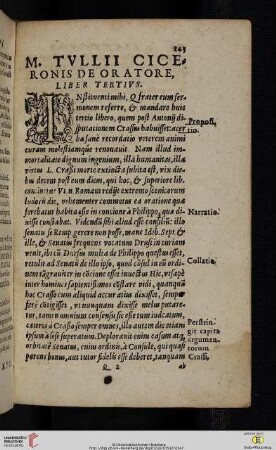 243
M. TVLLII CICE-
RONIS DE ORATORE,
LIBER TERTIVS.
INstituenti mihi, Q. frater eum ser-
monem referre, & mandare huic
tertio libro, quem post Antonij dis-
putationem Crassus habuisset: acer-
ba sanè recordatio veterem animi
curam molestiamque renouauit. Nam illud im-
mortalitate dignum ingenium, illa humanitas, illa
virtus L. Crassi morte extincta subita est, vix die-
bus decem post eum diem, qui hac, & superiore lib.
continetur. Vt n. Romam redijt extremo scenicorum
ludorū die, vehementer commotus ea oratione quæ
ferebatur habita esse in concione à Philippo, quem di-
xisse constabat. Videndū sibi aliud esse consiliū: illo
senatu se Remp. gerere non posse. mane Idib. Sept. &
ille, & Senatus frequens vocatu Drusi in curiam
venit, ibi cū Drusus multa de Philippo questus esset,
retulit ad Senatū de illo ipso, quòd consul in eū ordi-
nem tā grauiter in cōcione esset inuectus. Hic, vt sæpè
inter homines sapientissimos cōstare vidi, quanquā
hoc Crasso cum aliquid accuratius dixisset, semper
ferè cōtigisset, vt nunquam dixisse melius putare-
tur, tamen omnium consensu sic esse tum iudicatum,
cæteros à Crasso semper omnes, illo autem die etiam
ipsum à sese superatum. Deplorauit enim casum atq.
orbitatē Senatus, cuius ordinis à Consule, qui quasi
parens bonus, aut tutor fidelis esse deberet, tanquam
Q 2 ab
Proposi-
tio.
Narratio.
Collatio.
Perstrin-
git capita
argumen-
torum
Crassi,
UNIVERSITÄTS-
BIBLIOTHEK
HEIDELBERG
© Universitätsbibliothek Heidelberg